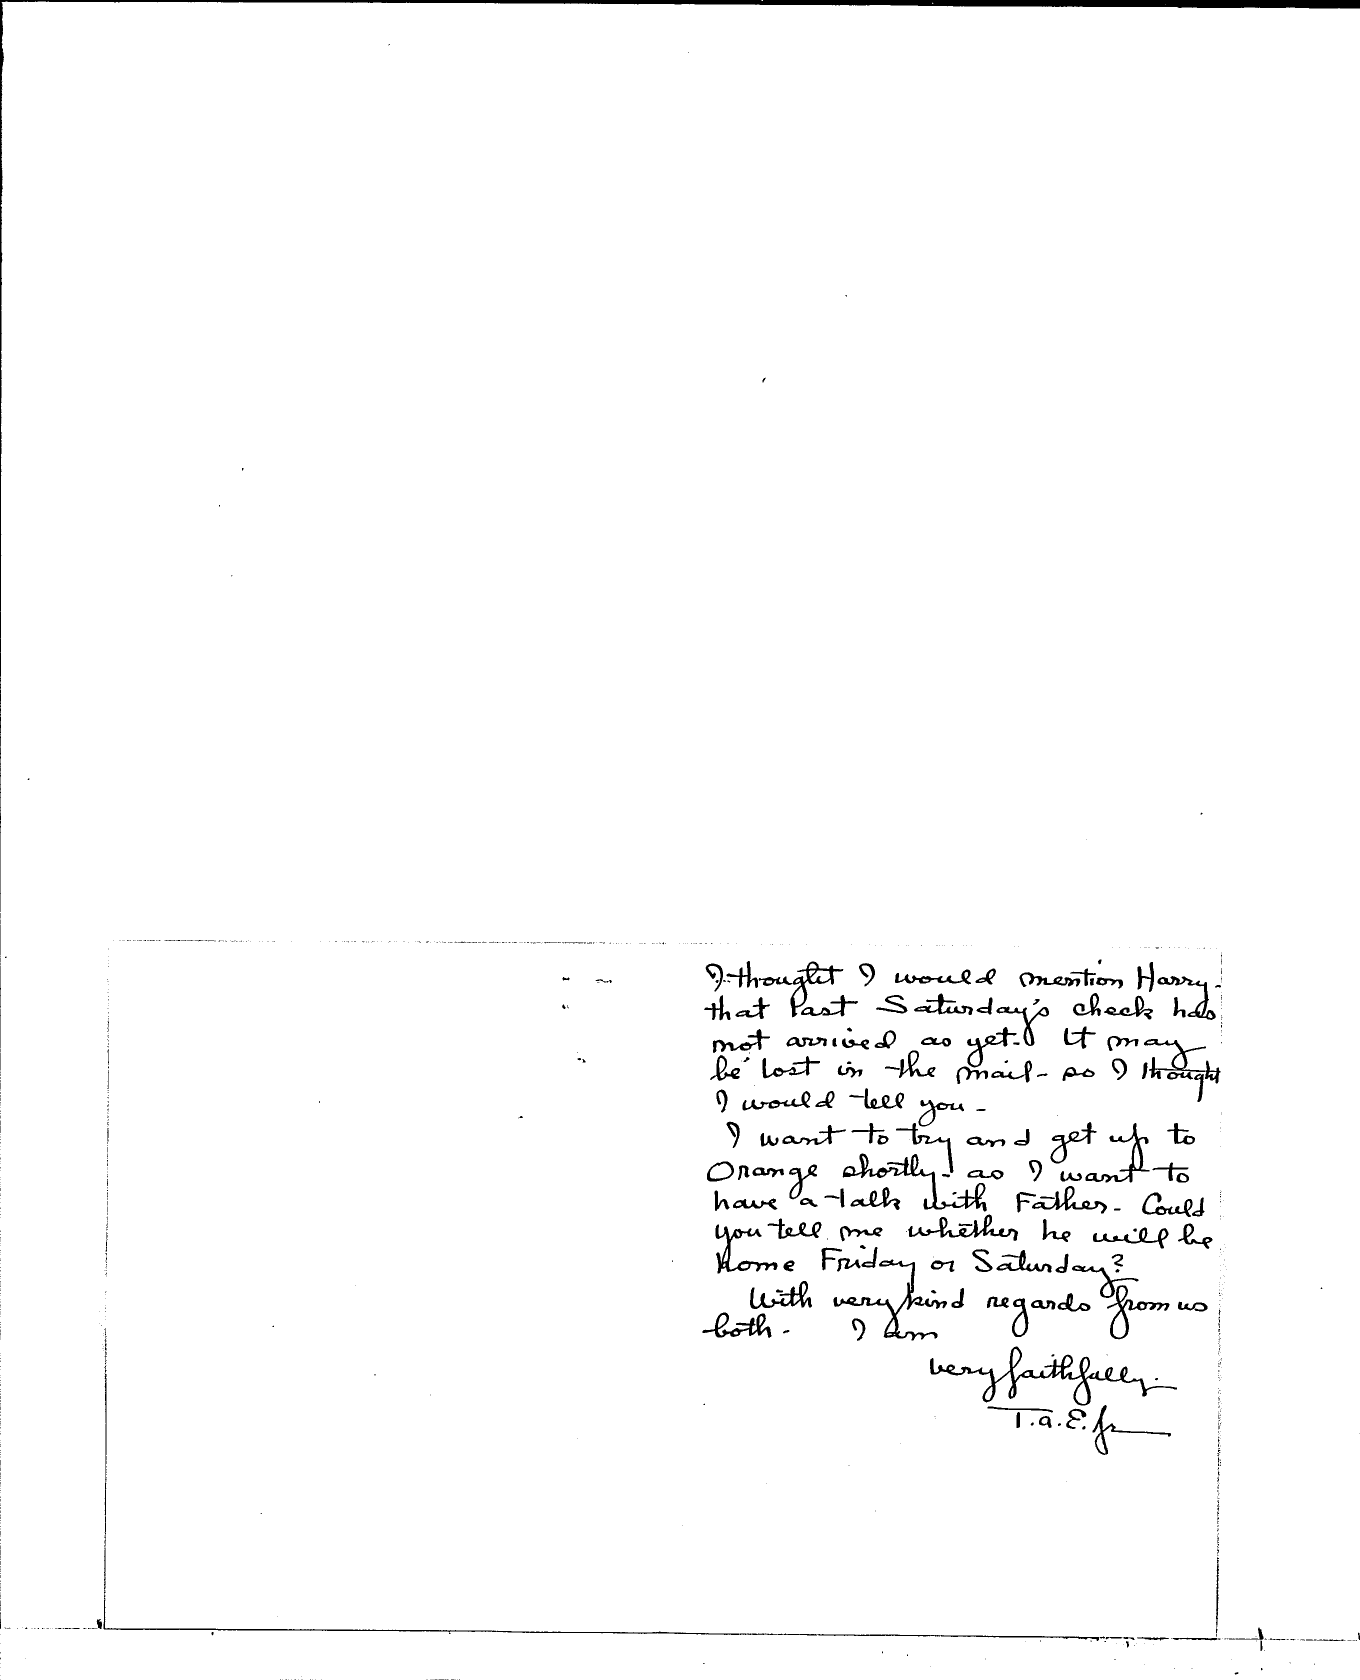 I thought I would mention Harry-
that last Saturday's check has
not arrived as yet- It may
be lost in the mail- so I thought
I would tell you-
I want to try and get up to
Orange shortly- as I want to
have a talk with Father- Could
you tell me whether he will be
home Friday or Saturday?
With very kind regards from us
both- I am
very faithfully-
T.a.E. Jr